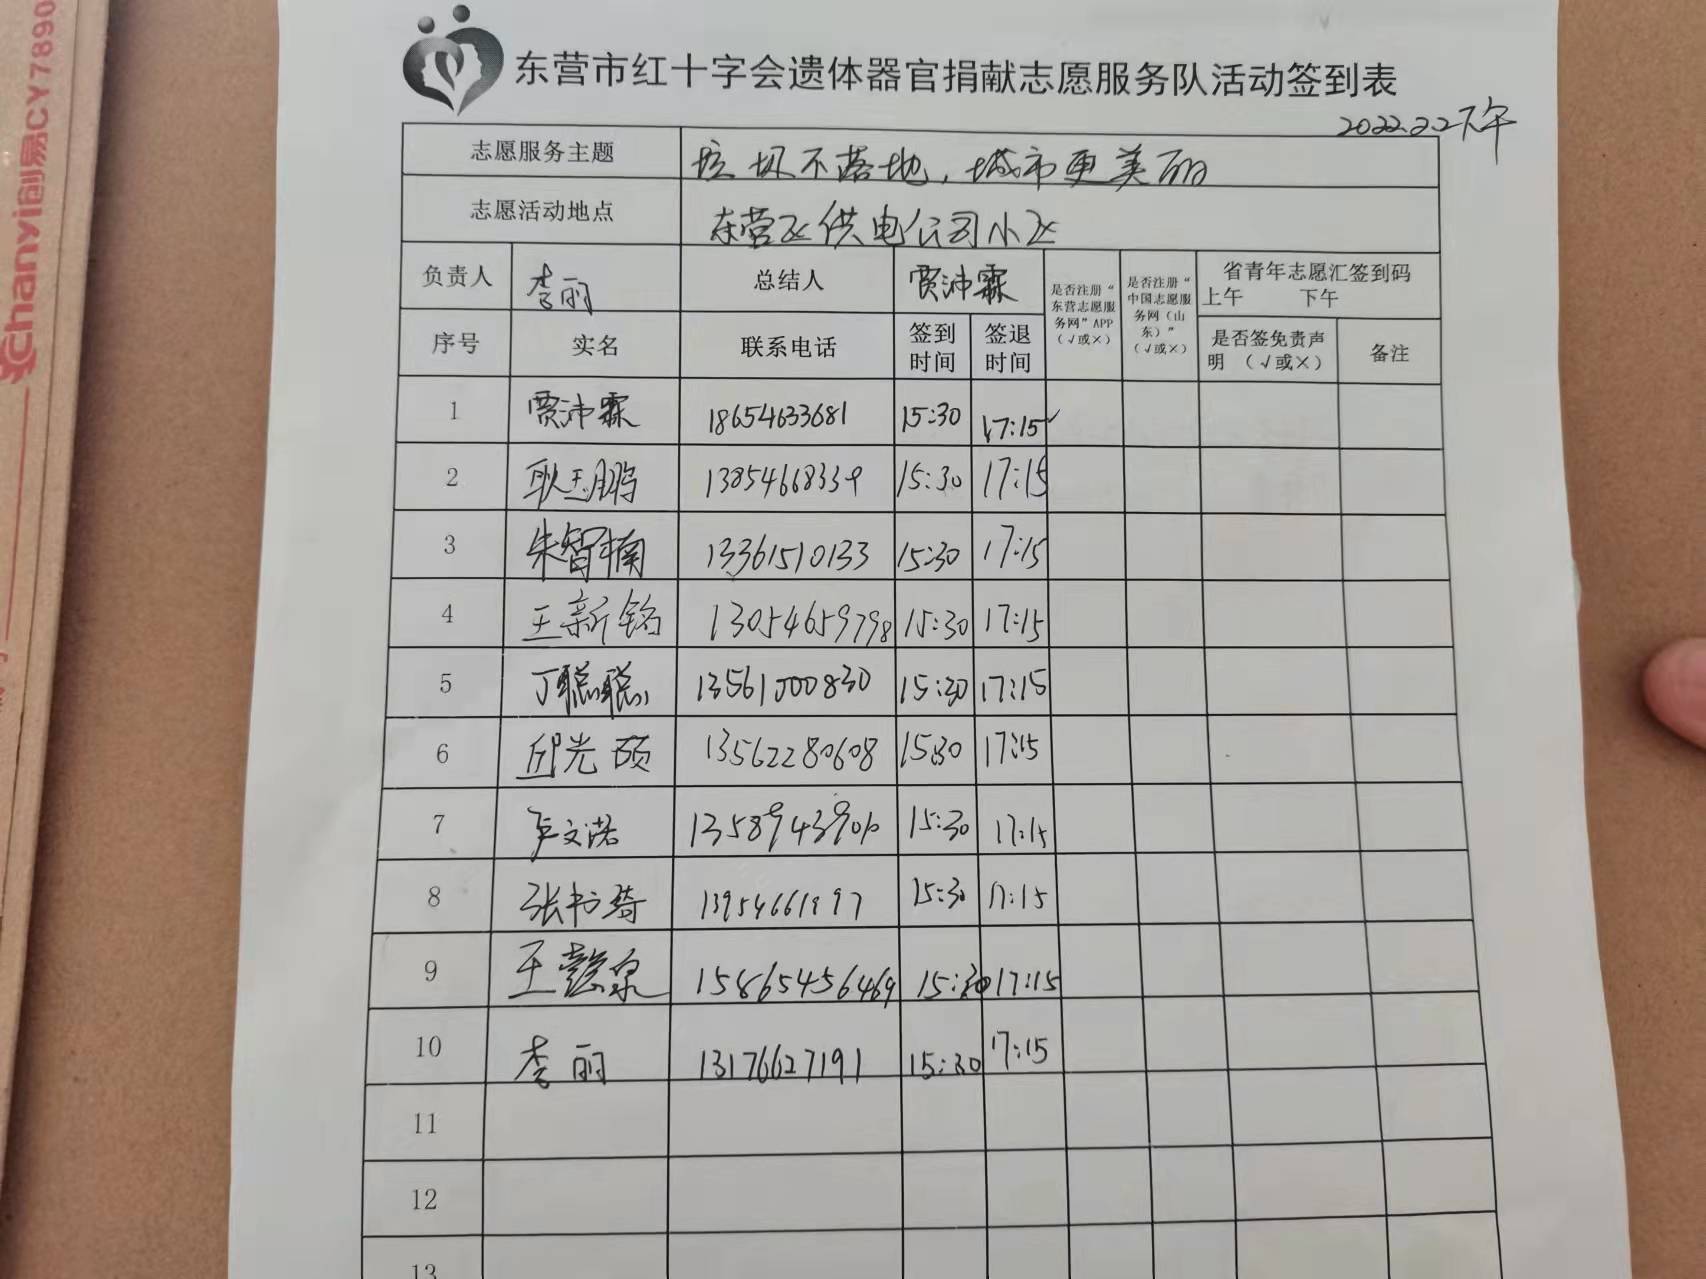 东营市红十字会遗体器官捐献志愿服务队活动签到表
2022.2.2下午
志愿服务主题 垃圾不落地，城市更美丽
志愿活动地点 东营区供电公司小区
负责人 李丽 总结人 贾沛霖 是否注册“东营志愿服务网”APP（√或×） 是否注册“中国志愿服务网（山东）”（√或×） 省青年志愿汇签到码 上午 下午
序号 实名 联系电话 签到时间 签退时间 是否签免责声明（√或×） 备注
1 贾沛霖 18654633681 15:30 17:15
2 耿玉鹏 13854668339 15:30 17:15
3 朱智楠 13361510133 15:30 17:15
4 王新铭 13054659798 15:30 17:15
5 丁聪聪 13561000830 15:30 17:15
6 邱光硕 13562280608 15:30 17:15
7 卢文诺 13589943906 15:30 17:15
8 张书琦 13954661897 15:30 17:15
9 王懿泉 15865456469 15:30 17:15
10 李丽 13176627191 15:30 17:15
11
12
13
chanyi创易CY7890